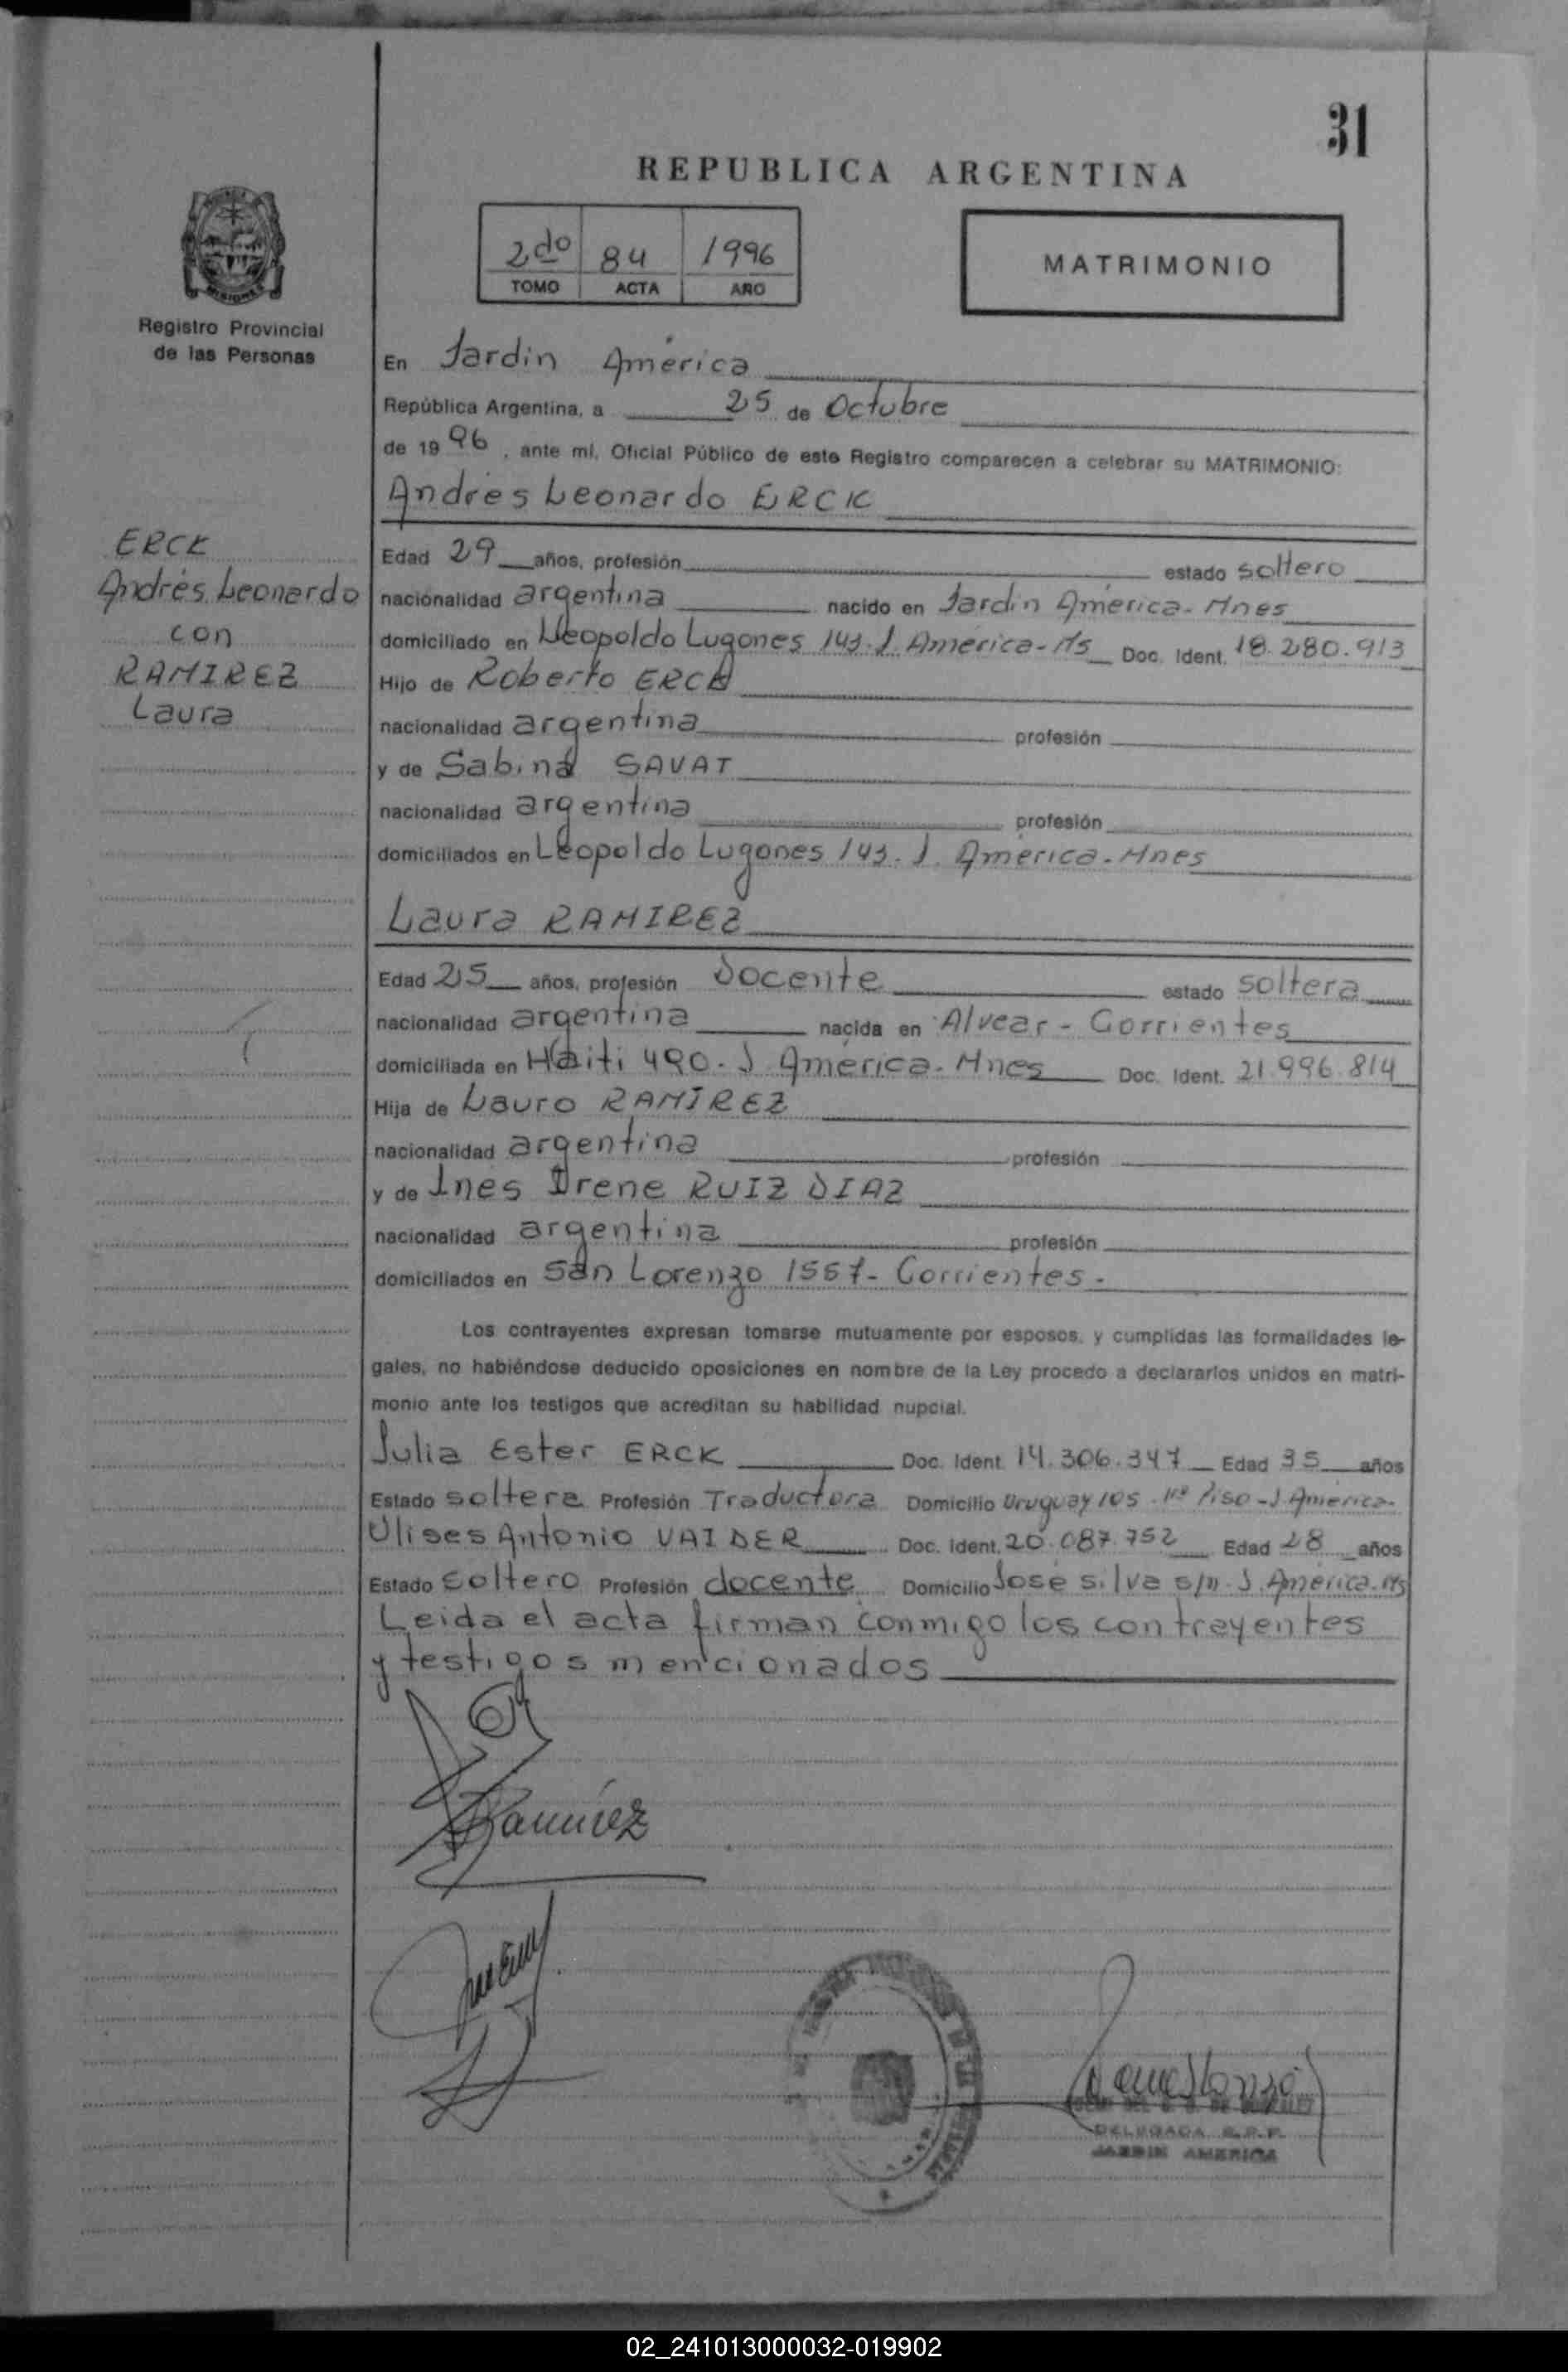 31
REPUBLICA ARGENTINA
2do 84 1996
TOMO ACTA AÑO
MATRIMONIO
MISIONES
Registro Provincial
de las Personas
En Jardin América
República Argentina, a 25 de Octubre
de 1996, ante mí, Oficial Público de este Registro comparecen a celebrar su MATRIMONIO:
Andrés Leonardo ERCK
ERCK
Andrés Leonardo
con
RAMIREZ
Laura
Edad 29 años, profesión estado soltero
nacionalidad argentina nacido en Jardin América-Mnes
domiciliado en Leopoldo Lugones 143. J. América-Ms Doc. Ident. 18.280.913
Hijo de Roberto ERCK
nacionalidad argentina profesión
y de Sabina SAVAT
nacionalidad argentina profesión
domiciliados en Leopoldo Lugones 143. J. América-Mnes
Laura RAMIREZ
Edad 25 años, profesión Docente estado soltera
nacionalidad argentina nacida en Alvear - Corrientes
domiciliada en Haiti 490. J América-Mnes Doc. Ident. 21.996.814
Hija de Lauro RAMÍREZ
nacionalidad argentina profesión
y de Ines Irene RUIZ DIAZ
nacionalidad argentina profesión
domiciliados en San Lorenzo 1557- Corrientes.
Los contrayentes expresan tomarse mutuamente por esposos, y cumplidas las formalidades le-
gales, no habiéndose deducido oposiciones en nombre de la Ley procedo a declararlos unidos en matri-
monio ante los testigos que acreditan su habilidad nupcial.
Julia Ester ERCK Doc. Ident. 14.306.347 Edad 35 años
Estado soltera Profesión Traductora Domicilio Uruguay 105. Piso-J América-
Ulises Antonio VAIDER Doc. Ident. 20.087.752 Edad 28 años
Estado soltero Profesión docente Domicilio José silva s/n. J. América.Ms
Leida el acta firman conmigo los contrayentes
y testigos mencionados
Ramírez
DELEGADA R.P.P.
JARDIN AMERICA
02_241013000032-019902